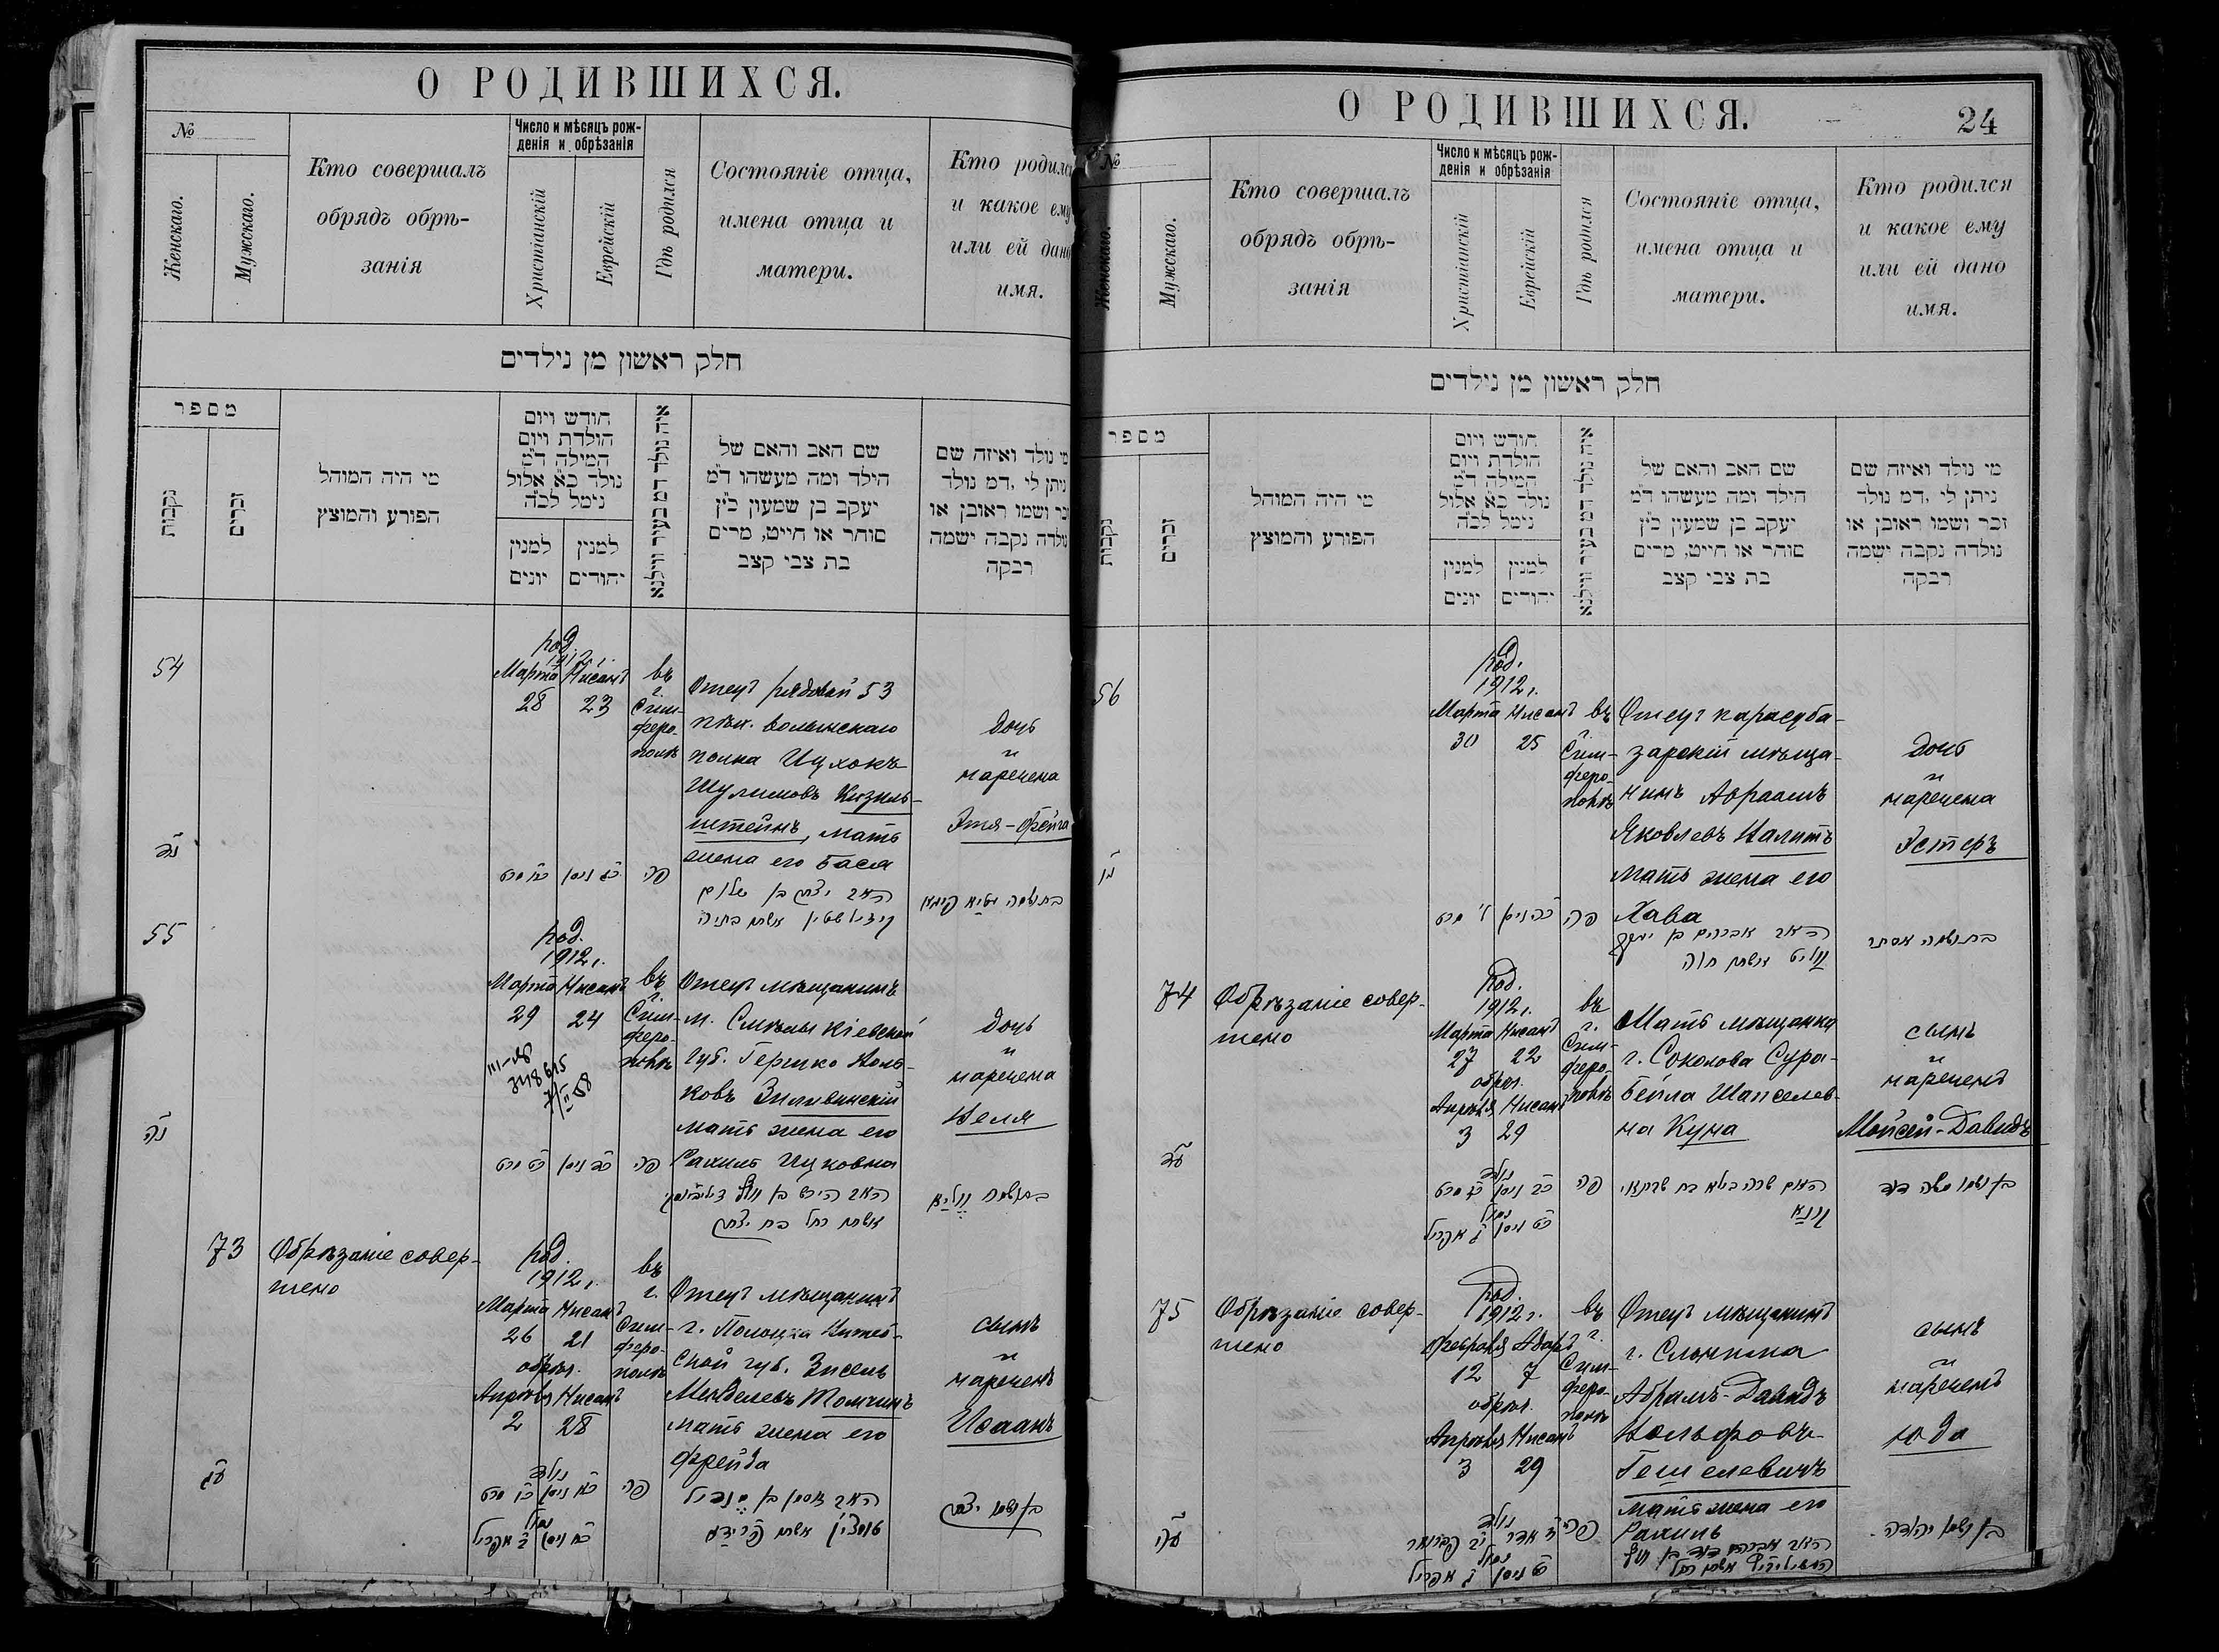 О РОДИВШИХСЯ.
№
Женскаго.
Мужскаго.
Кто совершалъ
обрядъ обрѣ-
занія
Число и мѣсяцъ рож-
денія и обрѣзанія
Христіанскій
Еврейскій
Гдѣ родился
Состояніе отца,
имена отца и
матери.
Кто родился
и какое ему
или ей дано
имя.
חלק ראשון מן נילדים
מספר
נקבות
זכרים
מי היה המוהל
הפורע והמוצץ
חודש ויום
הולדת ויום
המילה ד״מ
נולד כ״א אלול
נימל לכ״ה
למנין
יונים
למנין
יהודים
איה נולד דמ בעיר ווילנא
שם האב והאם של
הילד ומה מעשהו ד״מ
יעקב בן שמעון כ״ץ
סוחר או חייט, מרים
בת צבי קצב
מי נולד ואיזה שם
ניתן לי, דמ נולד
זכר ושמו ראובן או
נולדה נקבה ישמה
רבקה
54
род.
1912 г.
Марта Нисанъ
28 23
въ
г.
Сим-
феро-
полѣ
Отецъ рядовой 53
пѣх. волынскаго
полка Ицхокъ
Шулимовъ Кизиль-
штейнъ, мать
жена его Бася
Дочь
и
наречена
Этя-Фейга
נד
כ״ג ניסן
פה
האב יצחק בן שלום
55
род.
1912 г.
Марта Нисанъ
29 24
въ
г.
Сим-
феро-
полѣ
Отецъ мѣщанинъ
м. Смѣлы Кіевской
губ. Гершко Воль-
ковъ Зиливинскій
мать жена его
Рахиль Ицковна
Дочь
и
наречена
Веля
נה
כ״ד ניסן
פה
אשתו רחל בת יצחק
73
Обрѣзаніе совер-
шено
род.
1912 г.
Марта Нисанъ
26 21
обрѣз.
Апрѣля Нисанъ
2 28
въ
г.
Сим-
феро-
полѣ
Отецъ мѣщанинъ
г. Полоцка Витеб-
ской губ. Зисель
Менделевъ Толчинъ
мать жена его
Фрейда
сынъ
и
нареченъ
Исаакъ
עג
נולד
כ״א ניסן
פה
נמול
כ״ח ניסן ב׳ אפריל
בן ושמו יצחק
О РОДИВШИХСЯ.
24
№
Женскаго.
Мужскаго.
Кто совершалъ
обрядъ обрѣ-
занія
Число и мѣсяцъ рож-
денія и обрѣзанія
Христіанскій
Еврейскій
Гдѣ родился
Состояніе отца,
имена отца и
матери.
Кто родился
и какое ему
или ей дано
имя.
חלק ראשון מן נילדים
מספר
נקבות
זכרים
מי היה המוהל
הפורע והמוצץ
חודש ויום
הולדת ויום
המילה ד״מ
נולד כ״א אלול
נימל לכ״ה
למנין
יונים
למנין
יהודים
איה נולד דמ בעיר ווילנא
שם האב והאם של
הילד ומה מעשהו ד״מ
יעקב בן שמעון כ״ץ
סוחר או חייט, מרים
בת צבי קצב
מי נולד ואיזה שם
ניתן לי, דמ נולד
זכר ושמו ראובן או
נולדה נקבה ישמה
רבקה
56
род.
1912 г.
Марта Нисанъ
30 25
въ
г.
Сим-
феро-
полѣ
Отецъ карасуба-
зарскій мѣща-
нинъ Авраамъ
Яковлевъ Валитъ
мать жена его
Хава
Дочь
и
наречена
Эстеръ
נו
כ״ה ניסן
פה
האב אברהם בן יעקב
אשתו חוה
בת ושמה אסתר
74
Обрѣзаніе совер-
шено
род.
1912 г.
Марта Нисанъ
27 22
обрѣз.
Апрѣля Нисанъ
3 29
въ
г.
Сим-
феро-
полѣ
Мать мѣщанка
г. Соколова Сура-
Бейла Шапселев-
на Куна
сынъ
и
нареченъ
Мойсей-Давидъ
עד
נולד
כ״ב ניסן
פה
נמול
כ״ט ניסן ג׳ אפריל
בן ושמו משה דוד
75
Обрѣзаніе совер-
шено
род.
1912 г.
Февраля Адаръ
12 7
обрѣз.
Апрѣля Нисанъ
3 29
въ
г.
Сим-
феро-
полѣ
Отецъ мѣщанинъ
г. Слонима
Абрамъ-Давидъ
Вольфовъ
Гешелевичъ
мать жена его
Рахиль
сынъ
и
нареченъ
Юда
עה
נולד
ז׳ אדר י״ב פברואר
פה
נמול
כ״ט ניסן ג׳ אפריל
האב אברהם דוד בן
אשתו רחל
בן ושמו יהודה